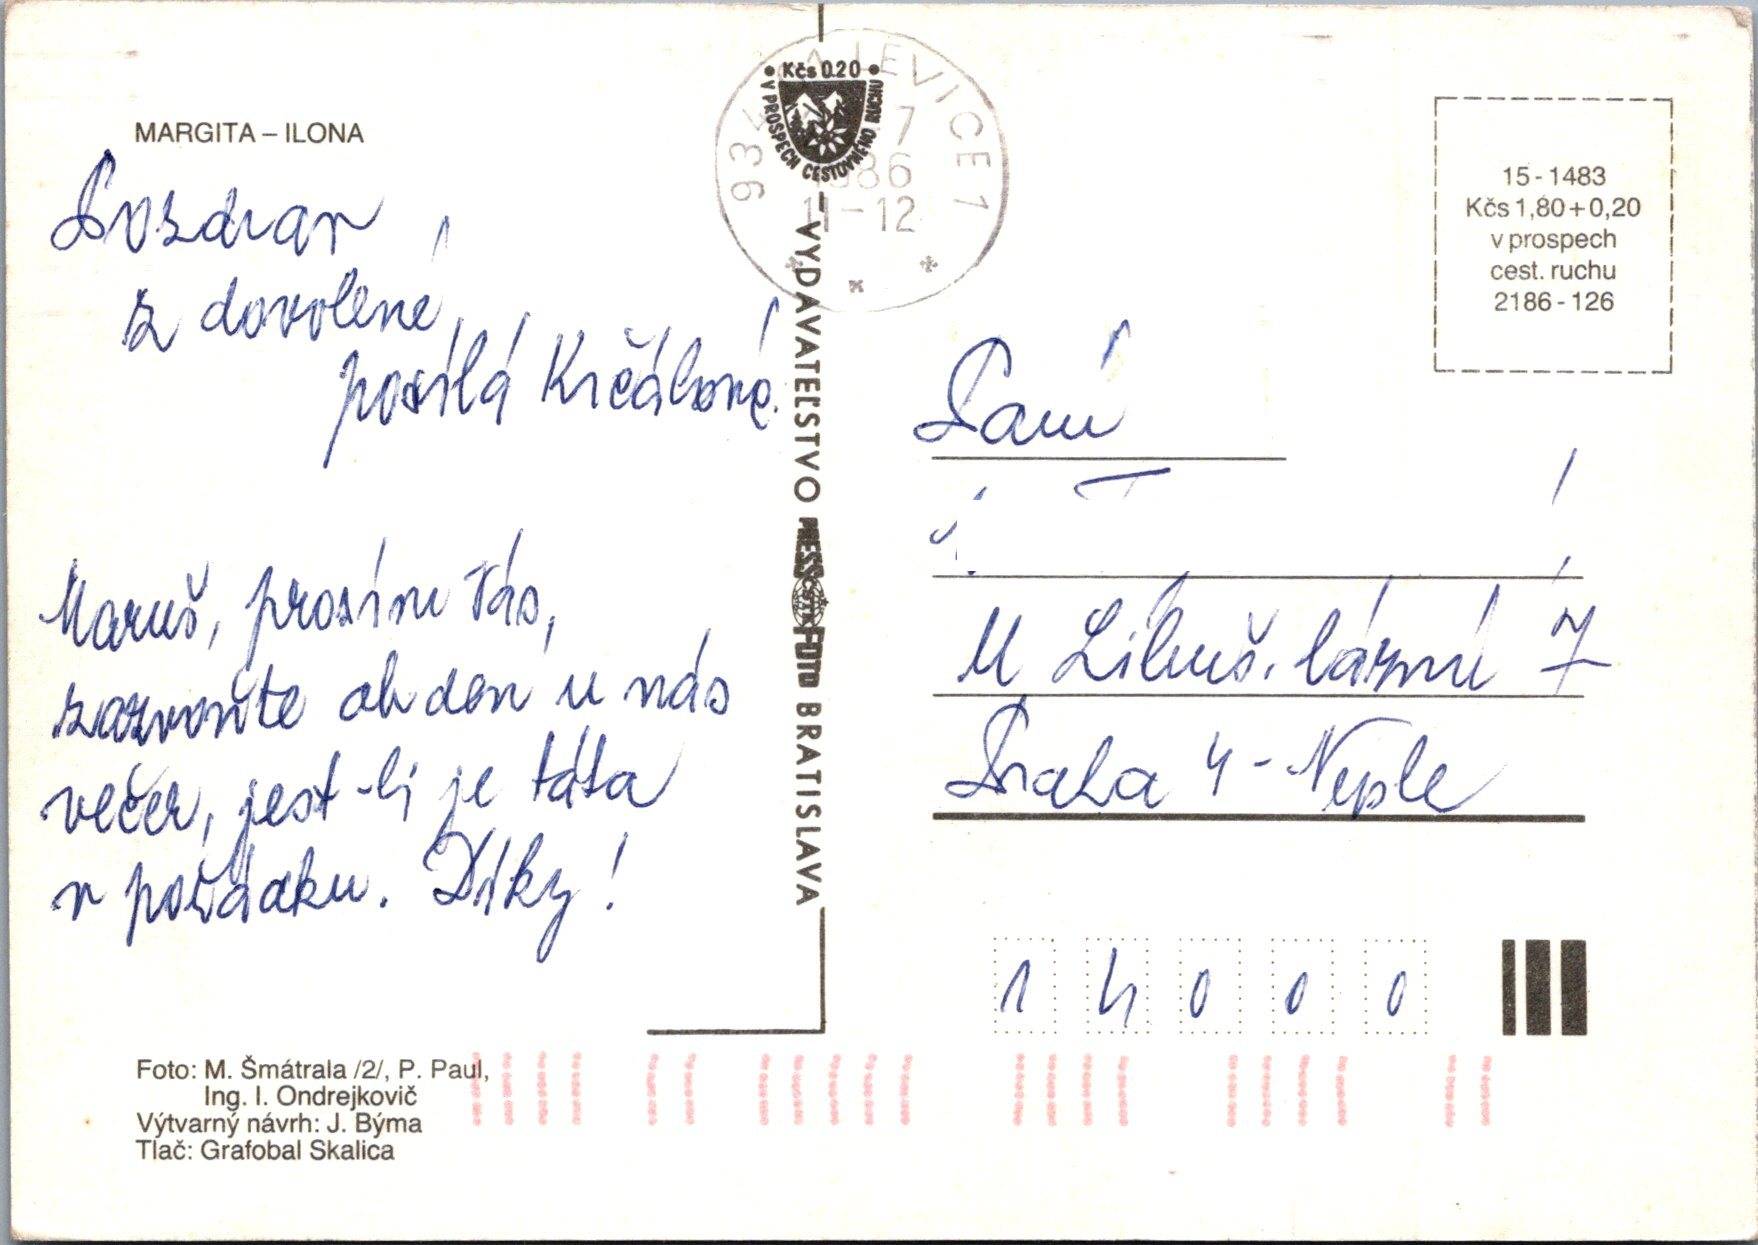 MARGITA – ILONA
Pozdrav
z dovolené
posílá Krčálová.
Maruš, prosím Vás,
zazvoňte ob den u nás
večer, jest-li je táta
v pořádku. Díky!
Foto: M. Šmátrala /2/, P. Paul,
Ing. I. Ondrejkovič
Výtvarný návrh: J. Býma
Tlač: Grafobal Skalica
• Kčs 0.20 •
V PROSPECH CESTOVNÉHO RUCHU
LEVICE 1
7
1986
11-12
VYDAVATEĽSTVO PRESSFOTO BRATISLAVA
ČSTK
15 - 1483
Kčs 1,80 + 0,20
v prospech
cest. ruchu
2186 - 126
Paní
U Libuš. lázní 7
Praha 4 -
14000